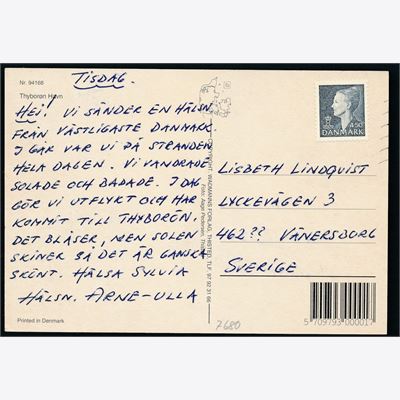 Nr. 94168
Thyborøn Havn
TISDAG.
HEJ! VI SÄNDER EN HÄLSN.
FRÅN VÄSTLIGASTE DANMARK.
I GÅR VAR VI PÅ STRANDEN
HELA DAGEN. VI VANDRADE
SOLADE OCH BADADE. I DAG
GÖR VI UTFLYKT OCH HAR
KOMMIT TILL THYBORÖN.
DET BLÅSER, MEN SOLEN
SKINER SÅ DET ÄR GANSKA
SKÖNT. HÄLSA SYLVIA
HÄLSN. ARNE-ULLA
Printed in Denmark
TLF. 97 92 31 66
450
DANMARK
LISBETH LINDQUIST
LYCKEVÄGEN 3
462?? VÄNERSBORG
SVERIGE
7680
5 709793 000017